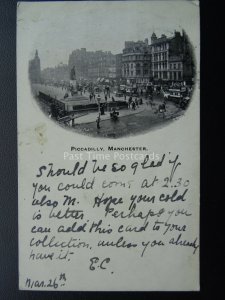 PICCADILLY, MANCHESTER.
Past Time Postcards
Should be so glad if
you could come at 2.30
also M. Hope your cold
is better. Perhaps you
can add this card to your
collection, unless you already
have it.
E.C.
Mar. 26th